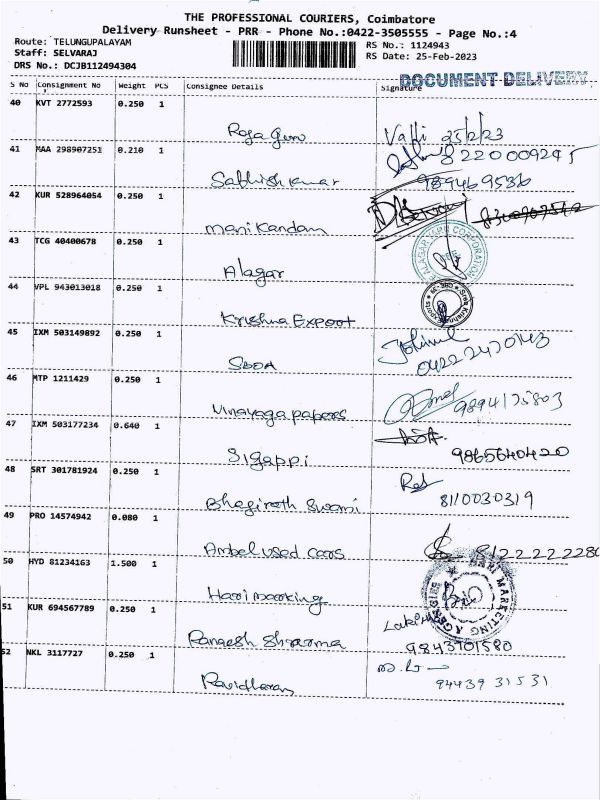 THE PROFESSIONAL COURIERS, Coimbatore
Delivery Runsheet - PRR - Phone No.:0422-3505555 - Page No.:4
Route: TELUNGUPALAYAM
RS No.: 1124943
Staff: SELVARAJ
RS Date: 25-Feb-2023
DRS No.: DCJB112494304
DOCUMENT DELIVERY
S No Consignment No Weight PCS Consignee Details Signature
40 KVT 2772593 0.250 1
Roja Guru 25/2/23
41 MAA 298907251 0.210 1 8220009245
Sathish kumar 989469536
42 KUR 528964054 0.250 1
Mani Kandan
43 TCG 40400678 0.250 1
Alagar
44 VPL 943013018 0.250 1
Krishna Export
45 IXM 503149892 0.250 1
SBOA 0422 2470143
46 MTP 1211429 0.250 1
Vinayaga papers 9894175803
47 IXM 503177234 0.640 1
Sigappi 9865640420
48 SRT 301781924 0.250 1
Bhagirath Swami 8110030319
49 PRO 14574942 0.080 1
Ambel used cars 8122222280
50 HYD 81234163 1.500 1
HARI MARKETING AGENCIES
Hari marking
51 KUR 694567789 0.250 1
Rangesh Sharma 9843701580
52 NKL 3117727 0.250 1
Ravidharan 94439 31531